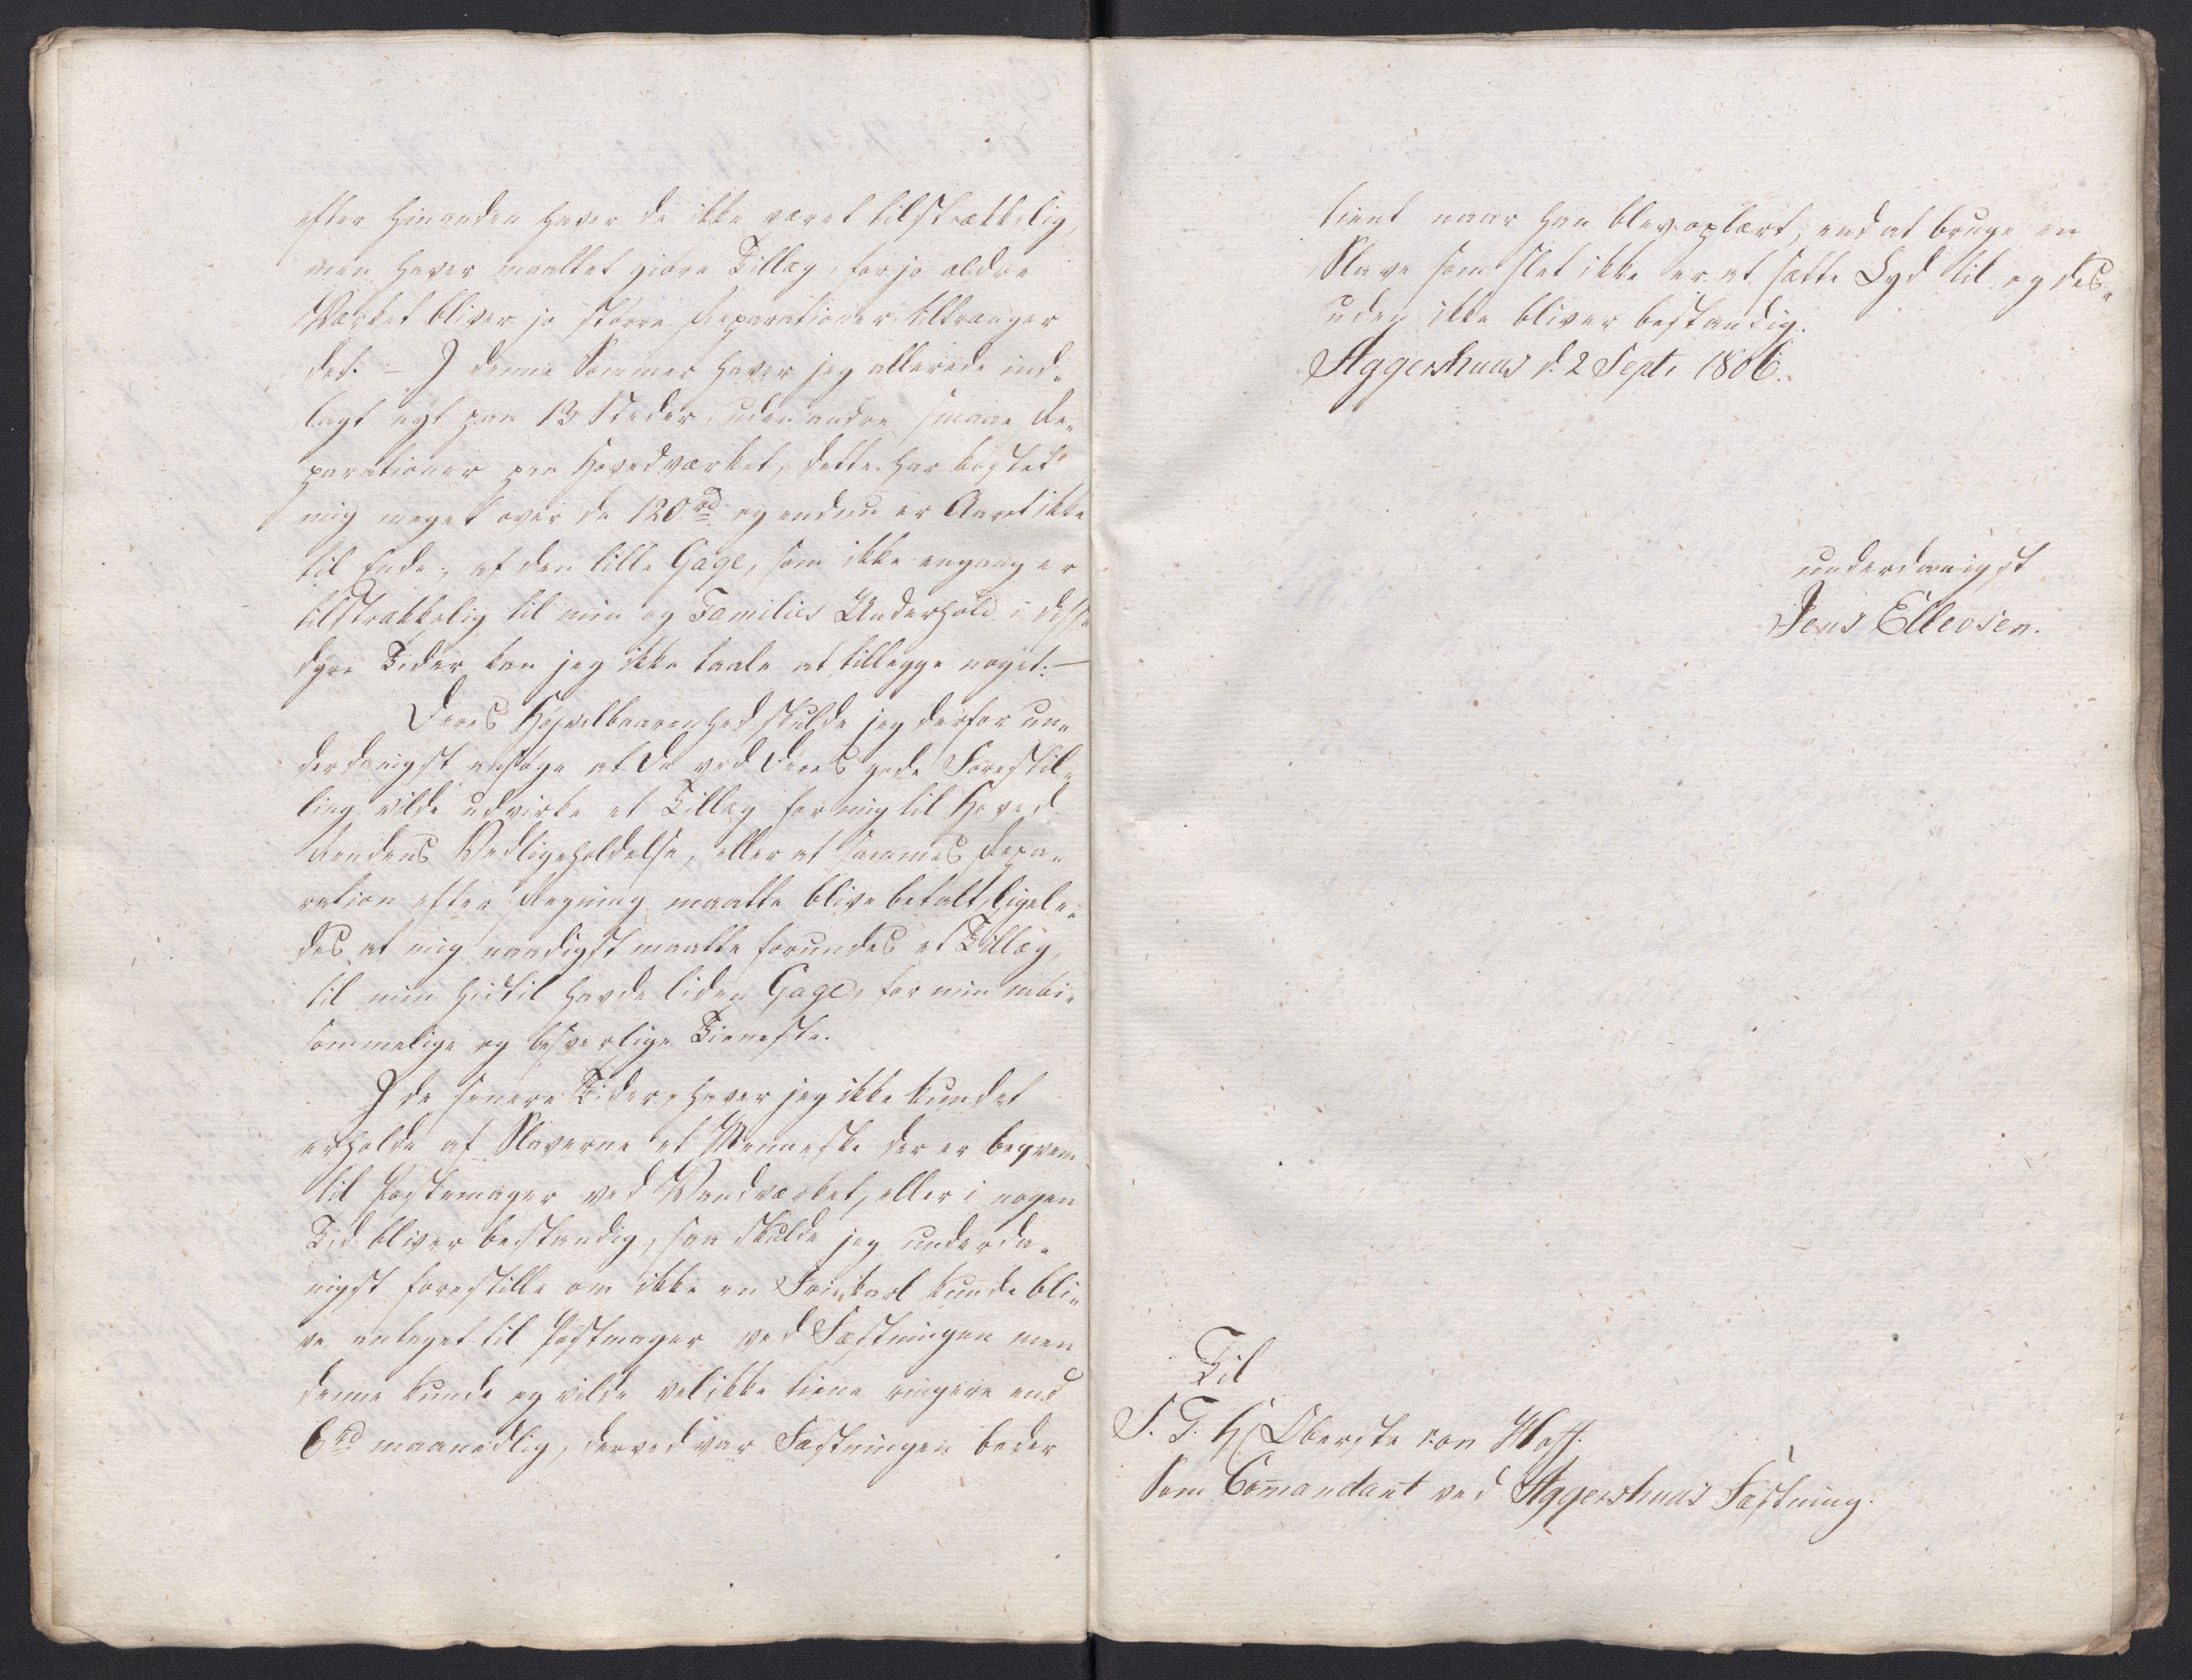 efter hinanden haver de ikke været tilstrækkelig,
men haver maattet giøre Tillæg, for jo ældre
Værket bliver jo større Reparationer tiltrænger
det. – I denne Sommer haver jeg allerede ind„
lagt nyt paa 13 Steder, uden andre smaae Re„
parationer paa Hovedværket, dette har kostet
mig meget over de 120 rd og endnu er Aaret ikke
til Ende, af den lille Gage, som ikke engang er
tilstrækkelig til min og Families Underhold i disse
dyre Tider kan jeg ikke taale at tillegge noget. –
Deres Høyvelbaarenhed skulde jeg derfor un„
derdanigst ansøge at De ved Deres gode Forestil„
ling vilde udvirke et Tillæg for mig til Hoved
Rendens Vedligeholdelse, eller at sammes Repa„
ration efter Regning maatte blive betalt, ligele„
des at mig naadigst maatte forundes et Tillæg,
til min hidtil havde liden Gage, for min møi„
sommelige og besverlige Tieneste.
I de senere Tider, haver jeg ikke kundet
erholde af Slaverne et Menneske der er beqvem
til Postemager ved Vandværket, eller i nogen
Tid bliver bestandig, saa skulde jeg underda„
nigst forestille om ikke en Friekarl kunde bli„
ve antaget til Postmager ved Fæstningen men
denne kunde og vilde vel ikke tiene ringere end
6 rd maanedlig, derved var Fæstningen bedre
tient naar han blev oplært, end at bruge en
Slave som slet ikke er at sætte Lyd til og des„
uden ikke bliver bestandig.
Aggershuus d. 2 Sept. 1806.
underdanigst
Jens Ellevsen.
Til
S. T. Hr Oberste von Hoff.
Som Comandant ved Aggershuus Fæstning.